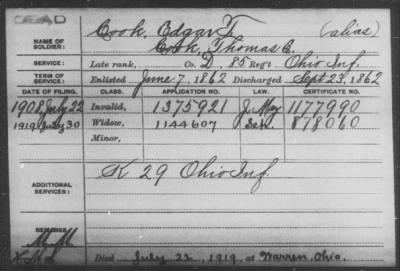 DEAD
Cook, Edgar T. (alias)
NAME OF SOLDIER: Cook, Thomas E.
SERVICE: Late rank, Co. D, 85 Reg't Ohio Inf.
TERM OF SERVICE: Enlisted June 7, 1862 Discharged Sept 23, 1862
DATE OF FILING. CLASS. APPLICATION NO. LAW. CERTIFICATE NO.
1908 July 22 Invalid, 1375921 1177990
1919 July 30 Widow, 1144607 878060
Minor,
K 29 Ohio Inf.
ADDITIONAL SERVICES:
REMARKS:
Died July 22, 1919, at Warren, Ohio.